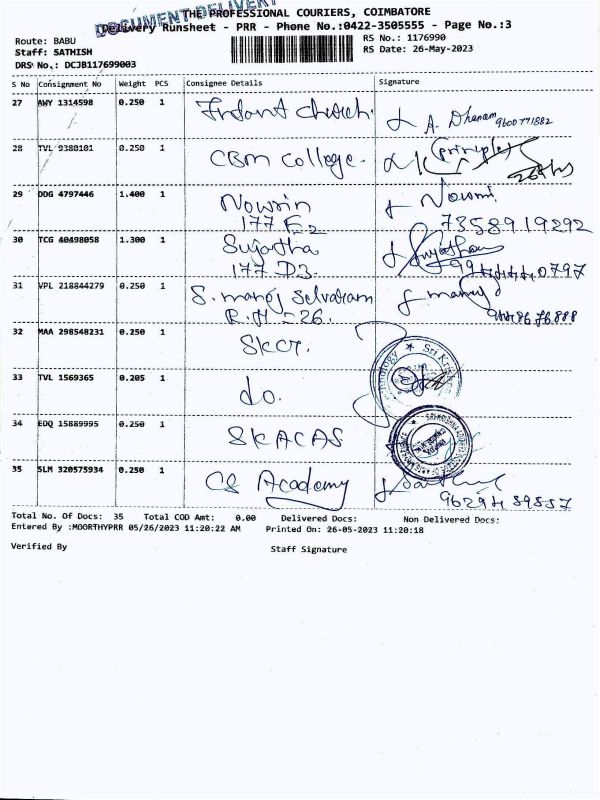 DOCUMENT DELIVERY
THE PROFESSIONAL COURIERS, COIMBATORE
Delivery Runsheet - PRR - Phone No.:0422-3505555 - Page No.:3
Route: BABU
RS No.: 1176990
Staff: SATHISH
RS Date: 26-May-2023
DRS No.: DCJB117699003
S No Consignment No Weight PCS Consignee Details Signature
27 AWY 1314598 0.250 1 church. A. Dhanam 9600771882
28 TVL 9380101 0.250 1 CBM College. (principle)
29 DDG 4797446 1.400 1 Nowrin
177 E2 7358919292
30 TCG 40498058 1.300 1 Sujatha Sujatha
177 D3.
31 VPL 218844279 0.250 1 S. manoj Selvaram manoj
R.M - 26.
32 MAA 298548231 0.250 1
33 TVL 1569365 0.205 1 do.
34 EDQ 15889995 0.250 1 SKACAS
35 SLM 320575934 0.250 1 CS Academy
Total No. Of Docs: 35 Total COD Amt: 0.00 Delivered Docs: Non Delivered Docs:
Entered By :MOORTHYPRR 05/26/2023 11:20:22 AM Printed On: 26-05-2023 11:20:18
Verified By
Staff Signature